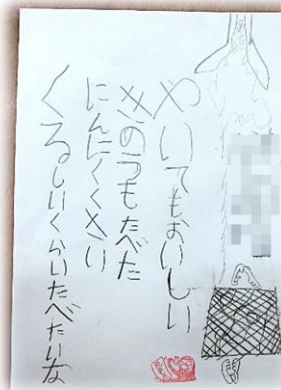 やいてもおいしい
きのうもたべた
にんにくくさい
くるしいくらいたべたいな